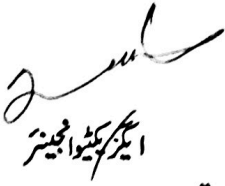 ایگزیکٹیو انجینئر